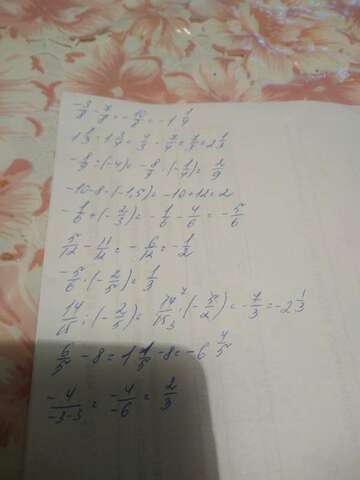 -3/8 - 7/8 = -10/8 = -1 1/4
1 1/3 · 1 3/4 = 4/3 · 7/4 = 7/3 = 2 1/3
-8/9 : (-4) = -8/9 · (-1/4) = 2/9
-10-8·(-1,5) = -10+12 = 2
-1/6 + (-2/3) = -1/6 - 4/6 = -5/6
5/12 - 11/12 = -6/12 = -1/2
-5/6 · (-2/5) = 1/3
14/15 : (-2/5) = 14/15 · (-5/2) = -7/3 = -2 1/3
6/5 - 8 = 1 1/5 - 8 = -6 4/5
-4/-3-3 = -4/-6 = 2/3